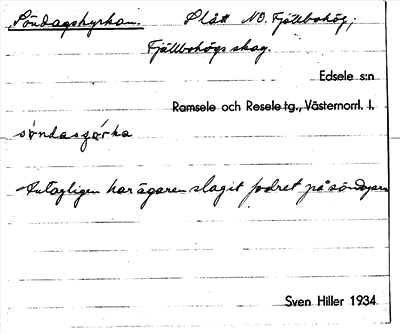 Söndagskyrkan. Slått NO. Fjällbohög;
Fjällbohögs skog.
Edsele s:n
Ramsele och Resele tg., Västernorrl. l.
söndaszørka
Antagligen har ägaren slagit fodret på söndagarna
Sven Hiller 1934